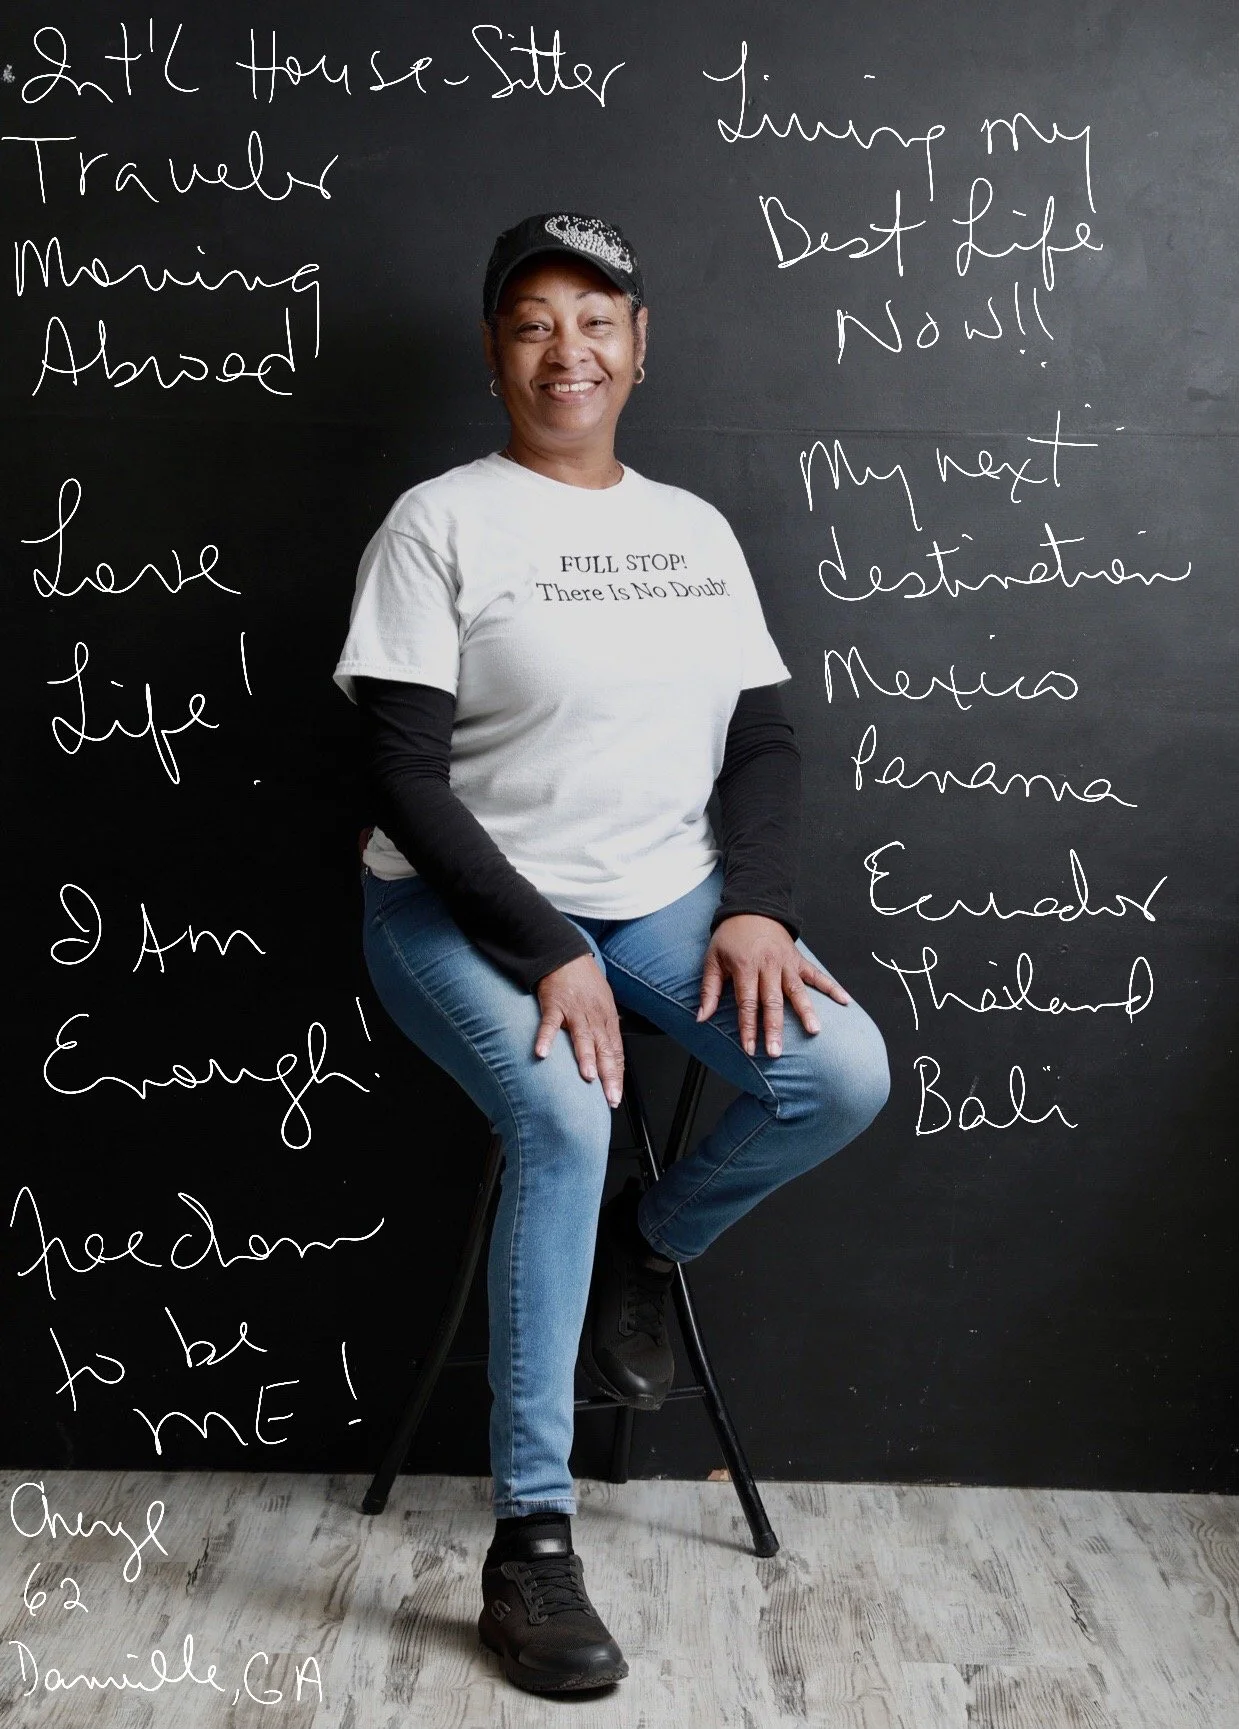 Int'l House-Sitter
Traveler
Moving
Abroad
Love
Life!
I Am
Enough!
Freedom
to be
ME!
Cheryl
62
Danville, GA
FULL STOP!
There Is No Doubt
Living my
Best Life
Now!!
My next
destination
Mexico
Panama
Ecuador
Thailand
Bali